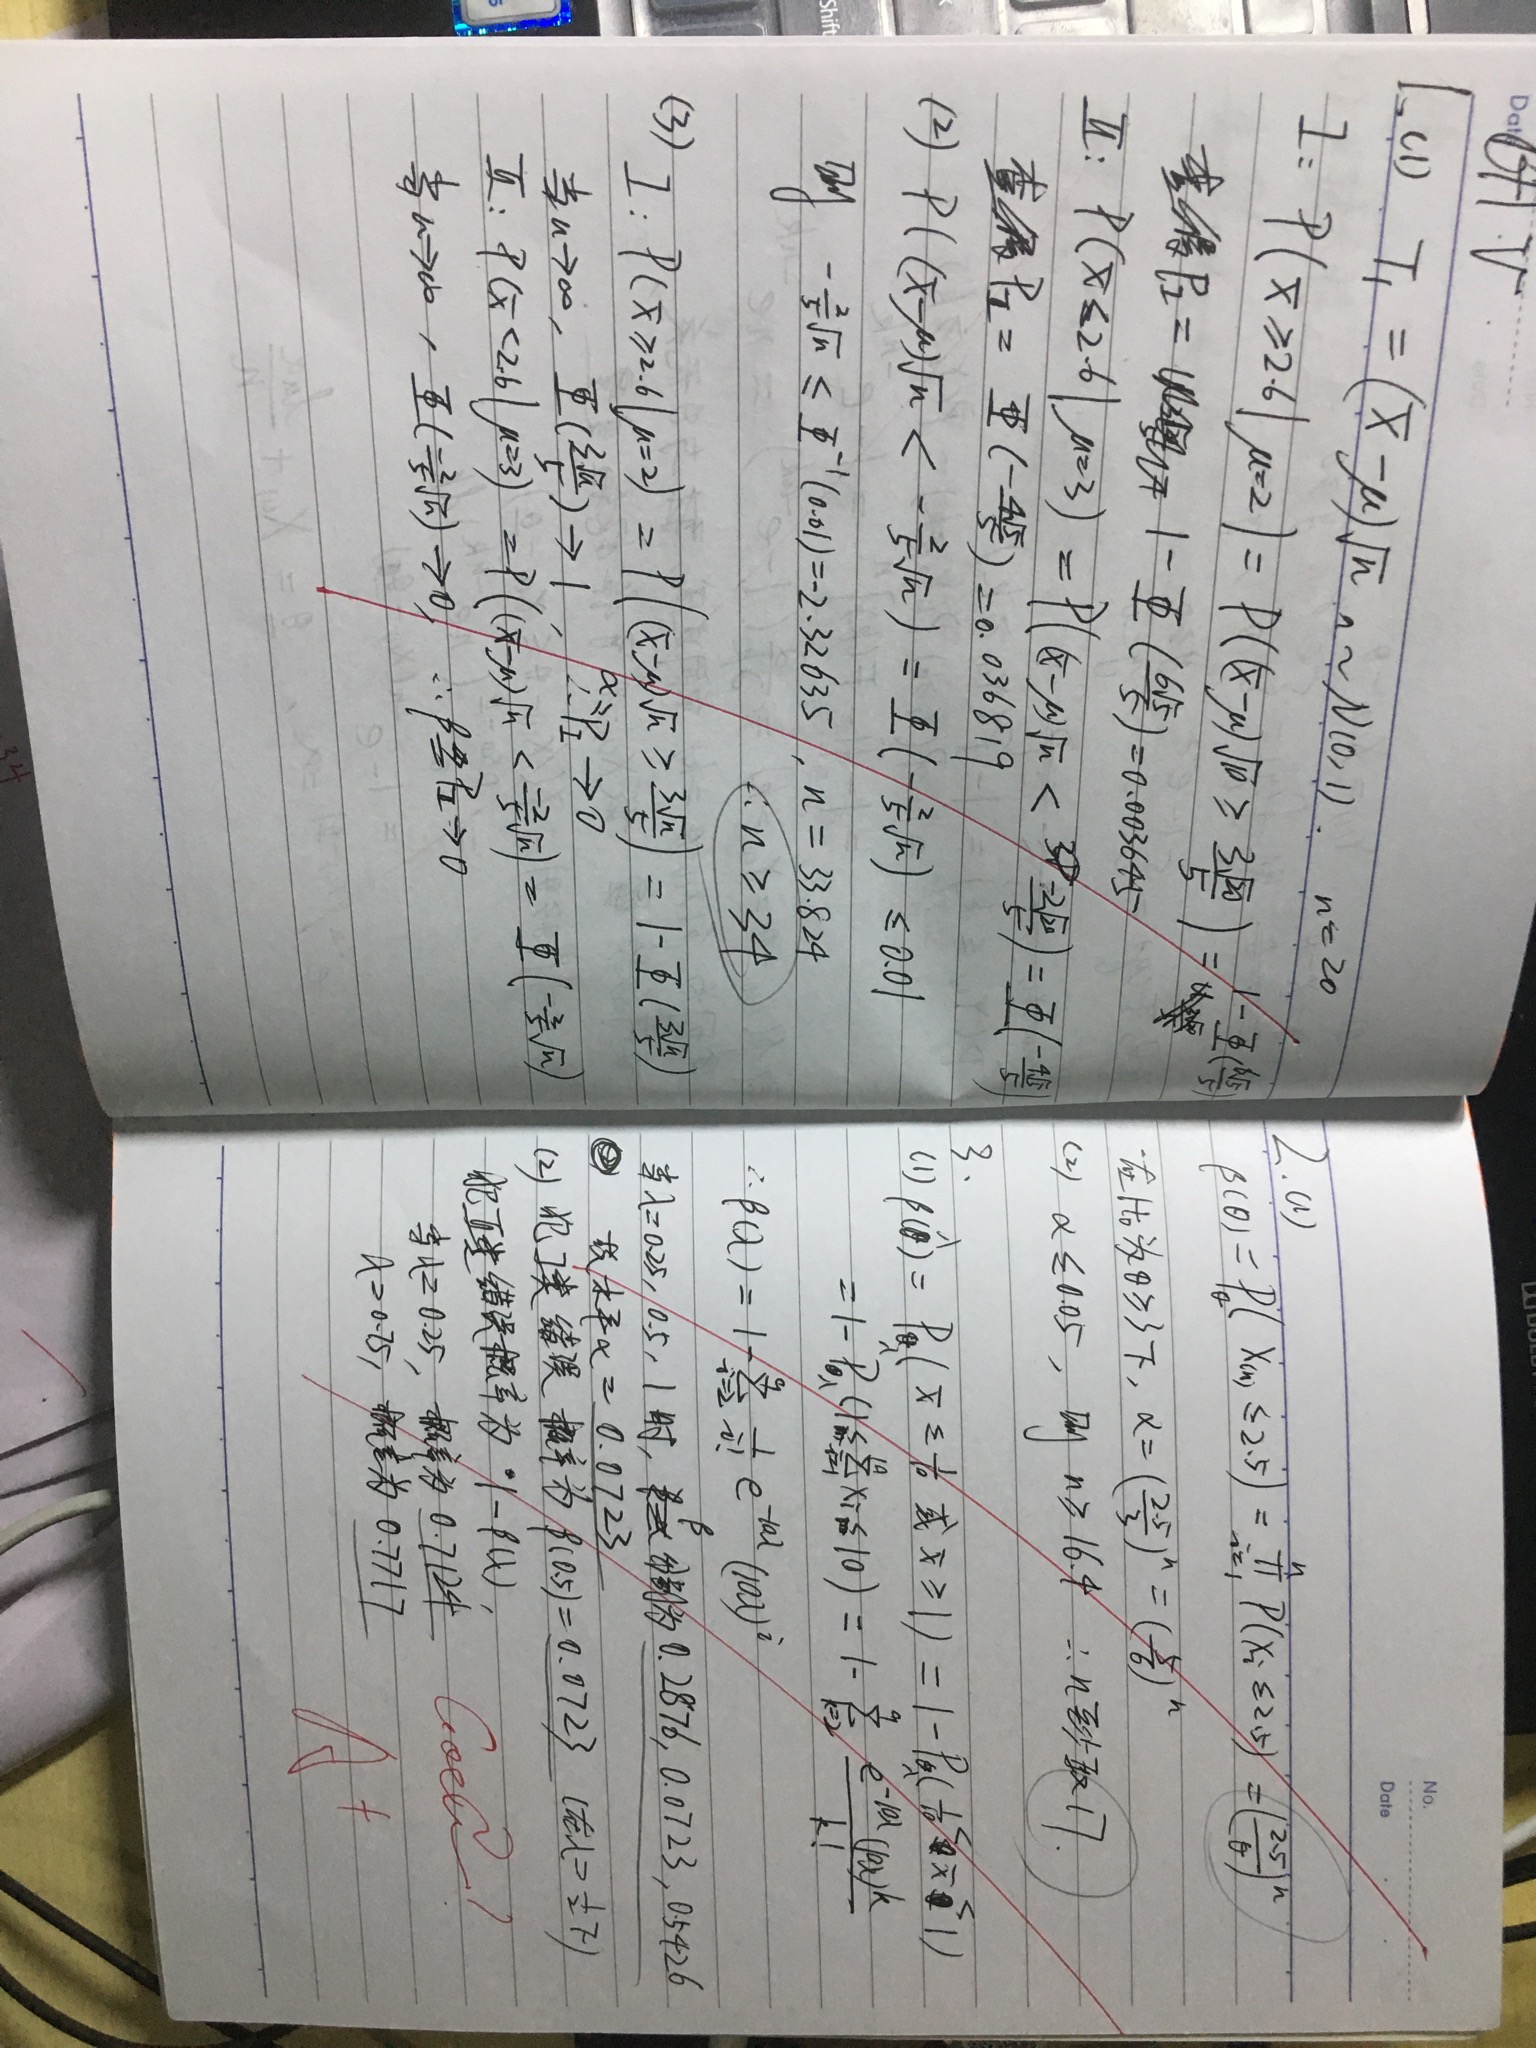 Date
1. (1) T₁ = (x̄-μ)√n ~ N(0,1). n=20
I: P(x̄≥2.6|μ=2) = P((x̄-μ)√n ≥ 3√n/5) = 1-Φ(6√5/5)
P_I = 1-Φ(6√5/5) = 0.003645
II: P(x̄≤2.6|μ=3) = P((x̄-μ)√n < -2√n/5) = Φ(-4√5/5)
P_II = Φ(-4√5/5) = 0.036819
(2) P((x̄-μ)√n < -2/5√n) = Φ(-2/5√n) ≤0.01
则 -2/5√n ≤ Φ⁻¹(0.01)=-2.32635, n=33.824
∴ n≥34
(3) I: P(x̄≥2.6|μ=2) = P((x̄-μ)√n ≥ 3√n/5) = 1-Φ(3√n/5)
当n→∞, Φ(3√n/5)→1, ∴α=P_I→0
II: P(x̄<2.6|μ=3) = P((x̄-μ)√n < -2/5√n) = Φ(-2/5√n)
当n→∞, Φ(-2/5√n)→0, ∴β=P_II→0
No.
Date
2.(1)
β(θ) = P_θ(X(n)≤2.5) = ∏ᵢ₌₁ⁿ P(Xᵢ≤2.5) = (2.5/θ)ⁿ
在H₀为θ≥3下, α=(2.5/3)ⁿ=(5/6)ⁿ
(2) α≤0.05, 则 n≥16.4 ∴n至少取17.
3.
(1) β(λ) = P_λ(x̄≤1/10 或 x̄≥1) = 1-P_λ(1/10<x̄<1)
= 1-P_λ(1<∑ᵢ₌₁¹⁰xᵢ<10) = 1-∑ₖ₌₂⁹ e^(-10λ)(10λ)^k/k!
∴β(λ) = 1-∑ᵢ₌₂⁹ 1/i! e^(-10λ)(10λ)^i
当λ=0.25, 0.5, 1时, β分别为0.2876, 0.0723, 0.5426
故水平α=0.0723
(2) 犯I类错误概率为β(0.5)=0.0723 (在λ=1/2下)
犯II类错误概率为1-β(λ),
当λ=0.25, 概率为0.7124
λ=0.75, 概率为0.7717
Good!
A+
Shift